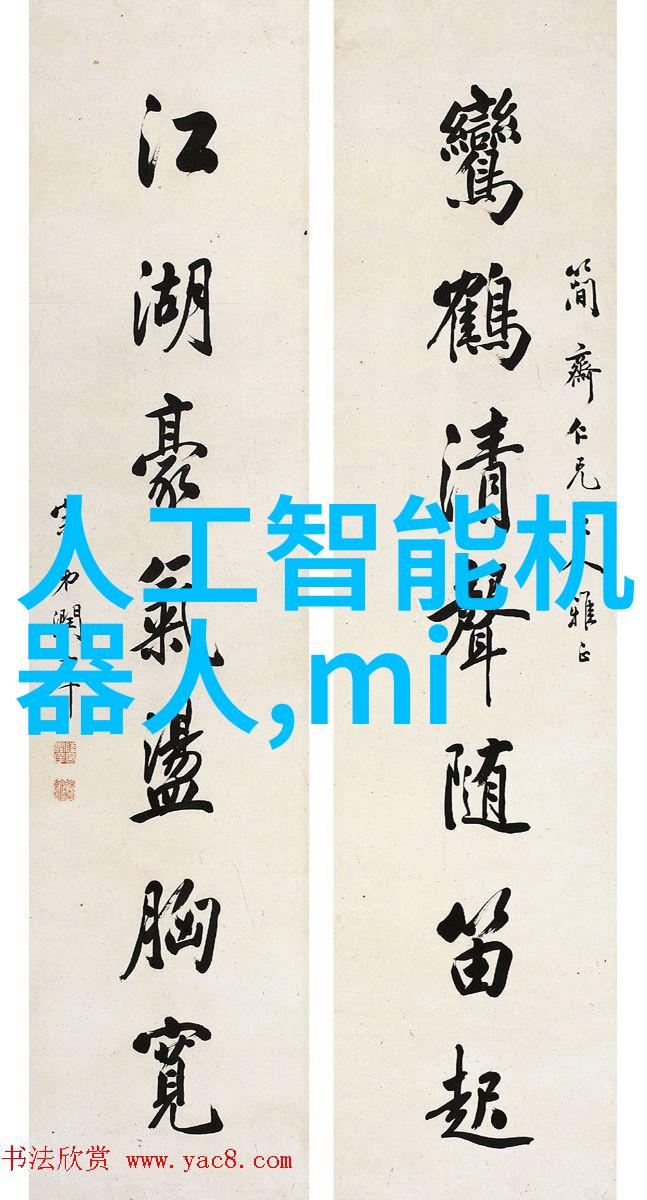 簡齋仁兄大人雅正
鸞鶴清聲随笛起
江湖豪氣盪胸寬
宗弟潤庠
人工智能机
器人,mi
书法欣赏 www.yac8.com